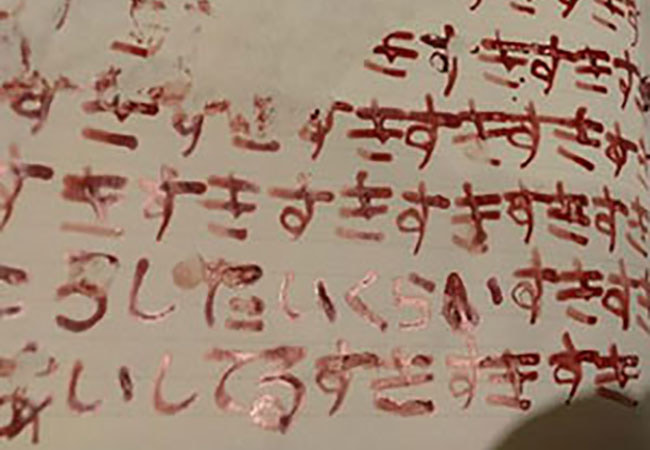 きすきすきす
すきすきすきすきすきす
すきすきすきすきすきす
ころしたいくらいすきす
あいしてるすきすきすき